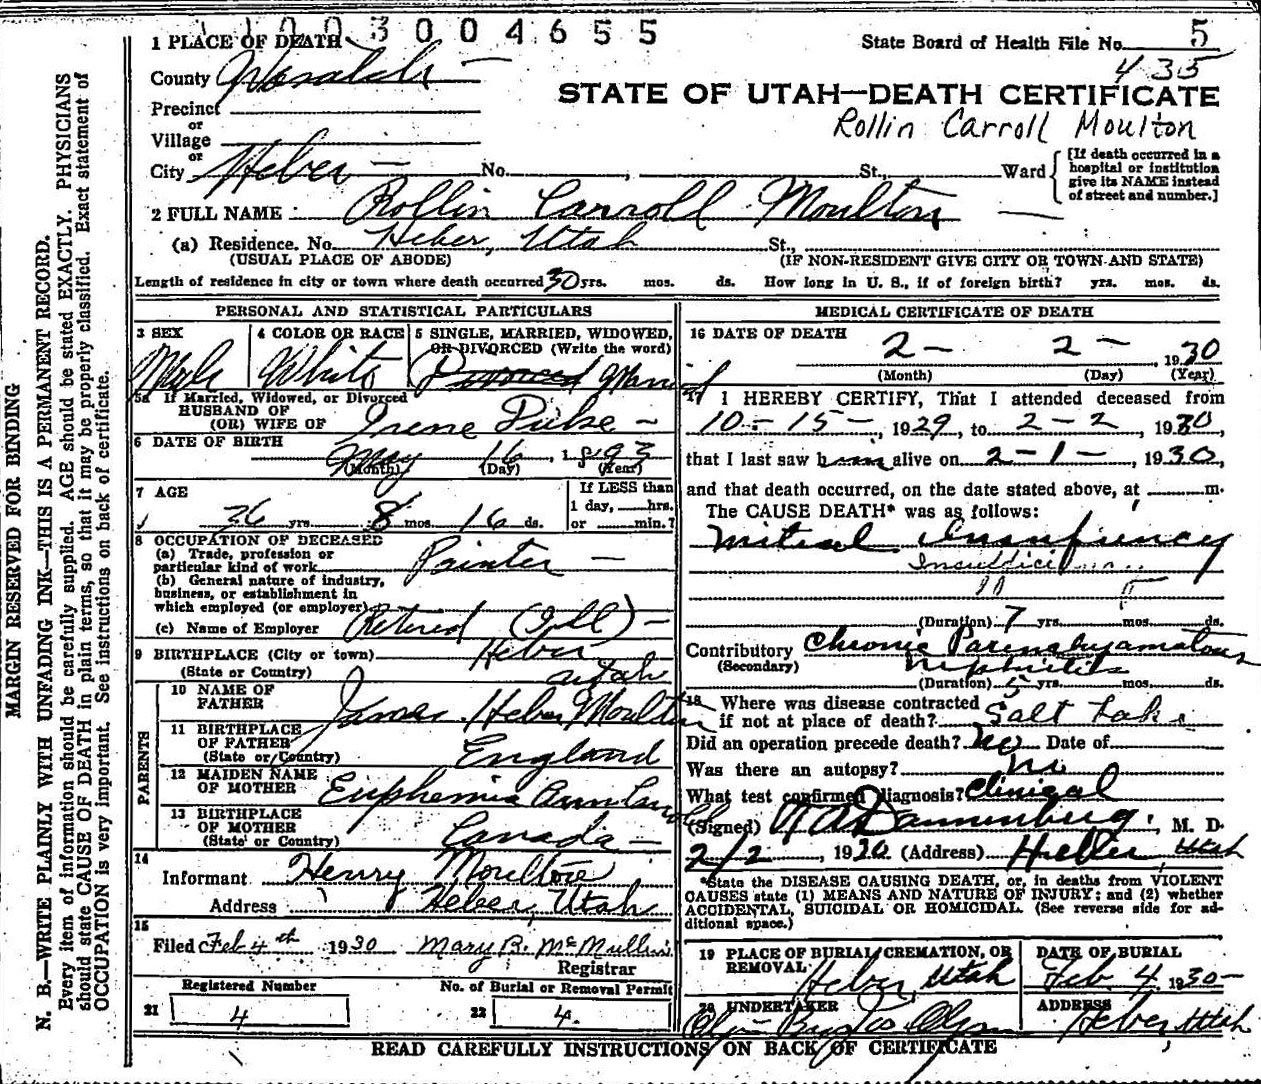 1 1 0 0 3 0 0 4 6 5 5
1 PLACE OF DEATH
State Board of Health File No. 5
435
County Wasatch
Precinct
or
Village
or
City Heber No. , St., Ward
[If death occurred in a
hospital or institution
give its NAME instead
of street and number.]
STATE OF UTAH—DEATH CERTIFICATE
Rollin Carroll Moulton
2 FULL NAME Rollin Carroll Moulton
(a) Residence. No. Heber, Utah St.,
(USUAL PLACE OF ABODE) (IF NON-RESIDENT GIVE CITY OR TOWN AND STATE)
Length of residence in city or town where death occurred 30 yrs. mos. ds. How long in U. S., if of foreign birth? yrs. mos. ds.
PERSONAL AND STATISTICAL PARTICULARS
3 SEX
Male
4 COLOR OR RACE
White
5 SINGLE, MARRIED, WIDOWED,
OR DIVORCED (Write the word)
Divorced Married
5a If Married, Widowed, or Divorced
HUSBAND OF
(OR) WIFE OF Irene
6 DATE OF BIRTH
May 16, 1893
(Month) (Day) (Year)
7 AGE
36 yrs. 8 mos. 16 ds.
If LESS than
1 day, hrs.
or min.?
8 OCCUPATION OF DECEASED
(a) Trade, profession or
particular kind of work Painter
(b) General nature of industry,
business, or establishment in
which employed (or employer)
(c) Name of Employer Retired (Ill)
9 BIRTHPLACE (City or town) Heber
(State or Country) Utah
PARENTS
10 NAME OF
FATHER James Heber Moulton
11 BIRTHPLACE
OF FATHER
(State or Country) England
12 MAIDEN NAME
OF MOTHER Euphemia Ann
13 BIRTHPLACE
OF MOTHER
(State or Country) Canada
14
Informant Henry Moulton
Address Heber, Utah
15
Filed Feb 4th 1930 Mary B. McMullin
Registrar
Registered Number
21 4
No. of Burial or Removal Permit
22 4.
MEDICAL CERTIFICATE OF DEATH
16 DATE OF DEATH
2 - 2 - 1930
(Month) (Day) (Year)
17 I HEREBY CERTIFY, That I attended deceased from
10-15-, 1929, to 2-2, 1930,
that I last saw him alive on 2-1-, 1930,
and that death occurred, on the date stated above, at m.
The CAUSE DEATH* was as follows:
Mitral
(Duration) 7 yrs. mos. ds.
Contributory Chronic Parenchyamatous
(Secondary) Nephritis
(Duration) 5 yrs. mos. ds.
18 Where was disease contracted
if not at place of death? Salt Lake
Did an operation precede death? No Date of
Was there an autopsy? No
What test confirmed diagnosis? Clinical
(Signed) W A Dannenburg, M. D.
2/2, 1930 (Address) Heber, Utah
*State the DISEASE CAUSING DEATH, or, in deaths from VIOLENT
CAUSES state (1) MEANS AND NATURE OF INJURY; and (2) whether
ACCIDENTAL, SUICIDAL OR HOMICIDAL. (See reverse side for ad-
ditional space.)
19 PLACE OF BURIAL, CREMATION, OR
REMOVAL Heber, Utah
DATE OF BURIAL
Feb. 4 1930
20 UNDERTAKER
ADDRESS
Heber, Utah
READ CAREFULLY INSTRUCTIONS ON BACK OF CERTIFICATE
MARGIN RESERVED FOR BINDING
N. B.—WRITE PLAINLY WITH UNFADING INK—THIS IS A PERMANENT RECORD.
Every item of information should be carefully supplied. AGE should be stated EXACTLY. PHYSICIANS
should state CAUSE OF DEATH in plain terms, so that it may be properly classified. Exact statement of
OCCUPATION is very important. See instructions on back of certificate.